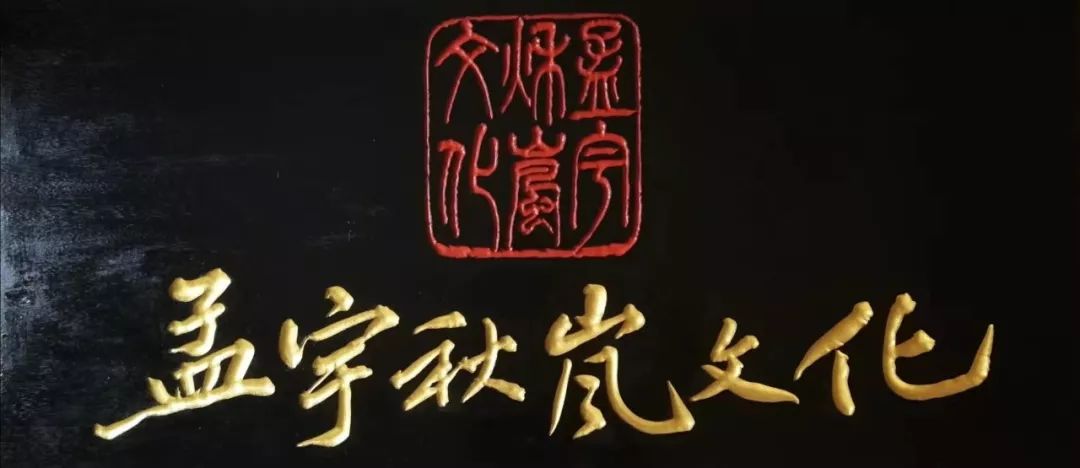 孟宇
秌嵐
文化
孟宇秋岚文化